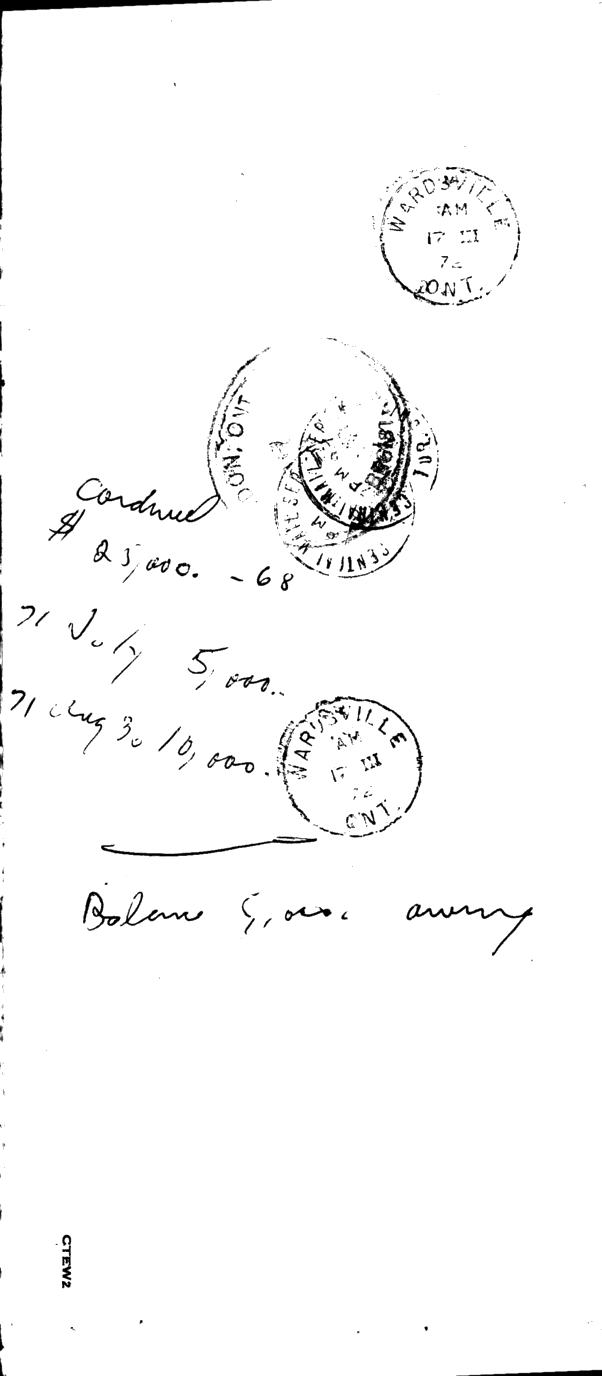 WARDSVILLE
AM
17 III
72
ONT.
DON, ONT
CENTRAL MAIL SER
PM
CENTRAL MAIL SER
PM
$ 25,000. - 68
71 July 5,000..
71 Aug 30 10,000.
WARDSVILLE
AM
17 III
72
ONT.
Balance 5,000. owing
CTEW2